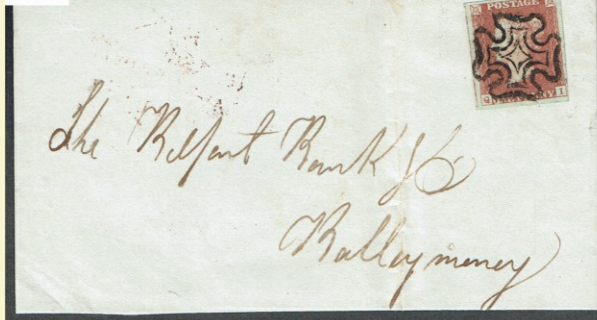 POSTAGE
Q I
The Belfast Bank
Balleymoney